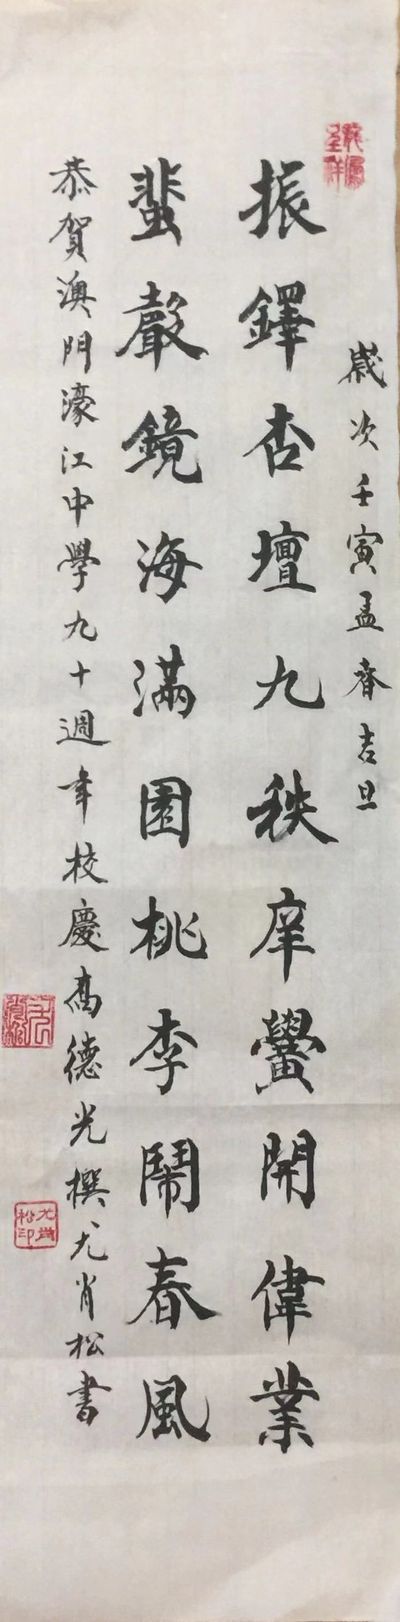 歲次壬寅孟春吉旦
振鐸杏壇九秩庠黌開偉業
蜚聲鏡海滿園桃李鬧春風
恭賀澳門濠江中學九十週年校慶高德光撰、尤肖松書
尤肖松印